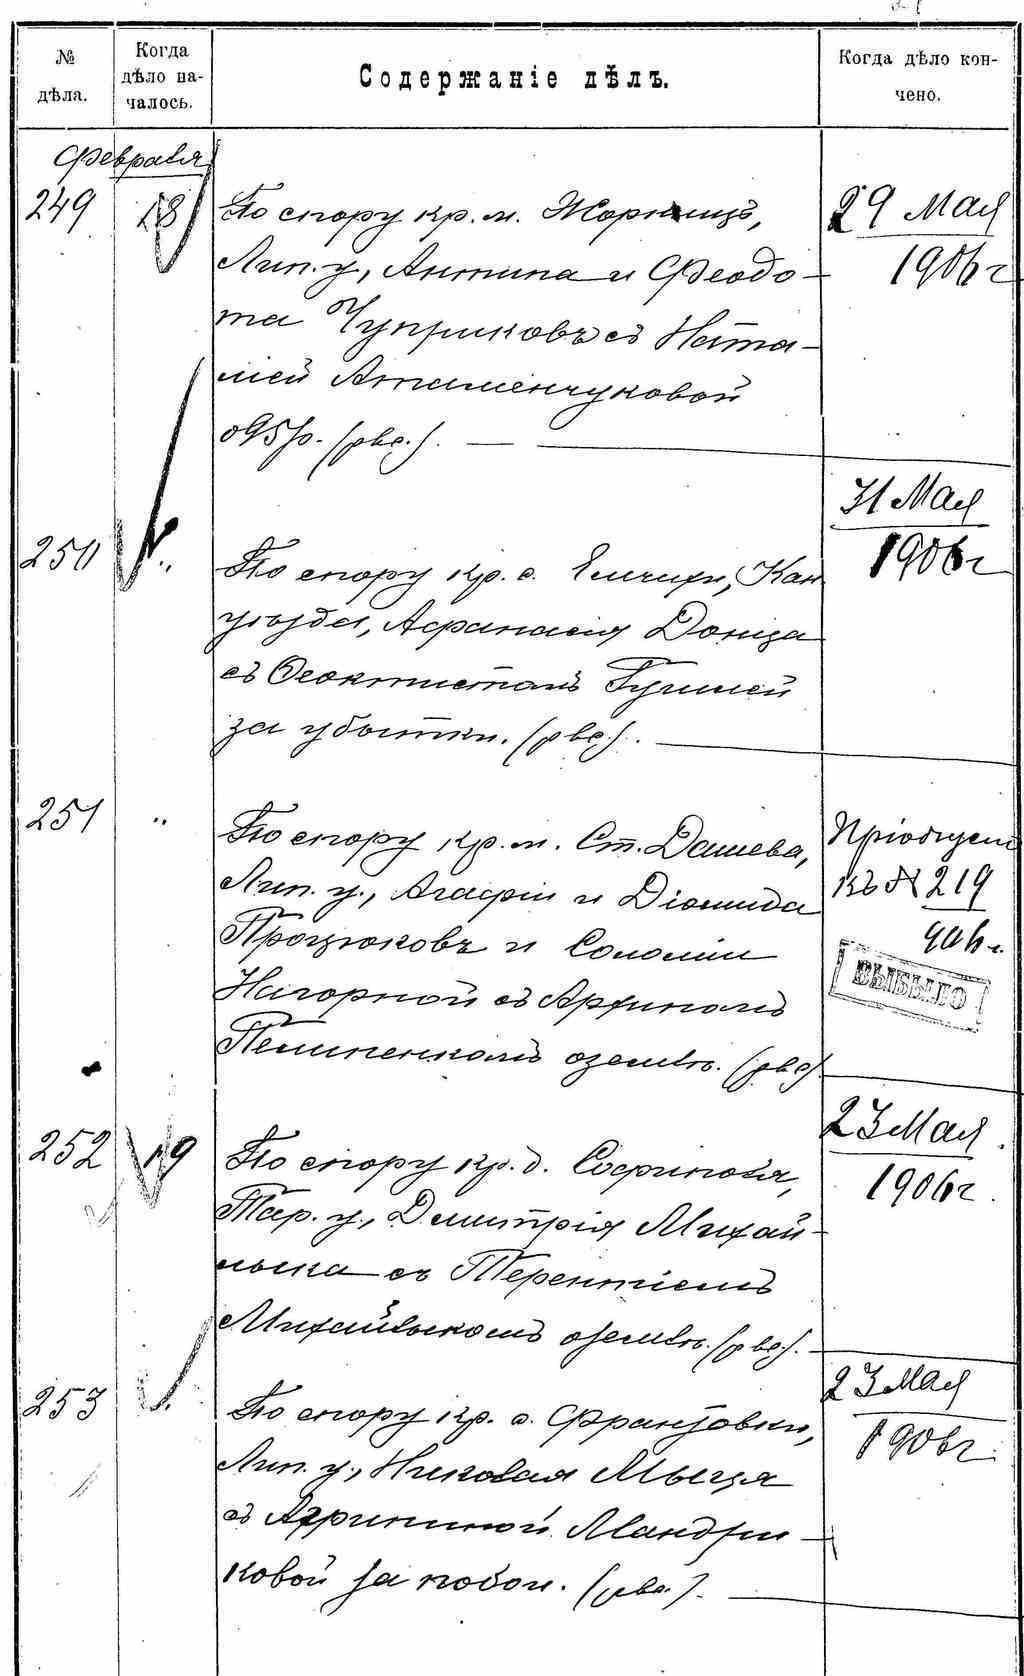 № дѣла.
Когда дѣло на-
чалось.
Содержаніе дѣлъ.
Когда дѣло кон-
чено.
Февраля
249 18 По спору кр. м. Жорнищъ,
Лип. у., Антипа и Феодо-
та Чуприковъ съ Ната-
ліей Атаменчуковой
о 95 р. (рвс.). —
29 Мая
1906 г
250 „ По спору кр. с. Ельчихи, Кан
уѣзда, Афанасія Донца
съ Феоктистомъ Гулицей
за убытки. (рвс.).
31 Мая
1906 г
251 „ По спору кр. м. Ст. Дашева,
Лип. у., Агафіи и Діомида
Процюковъ и Соломіи
Нагорной съ Архипомъ
Пелипенкомъ о землѣ. (рвс)
къ № 219
906 г.
ВЫБЫЛО
252 19 По спору кр. д. Софиповка,
Тар. у., Дмитрія Михай-
лыка съ Терентіемъ
Михайлыкомъ о землѣ. (рвс.).
23 Мая
1906 г.
253 „ По спору кр. с. Франтовки,
Лип. у., Николая Мыця
съ Агрипиной Мандри-
ковой за побои. (рвс.).
23 Мая
1906 г.